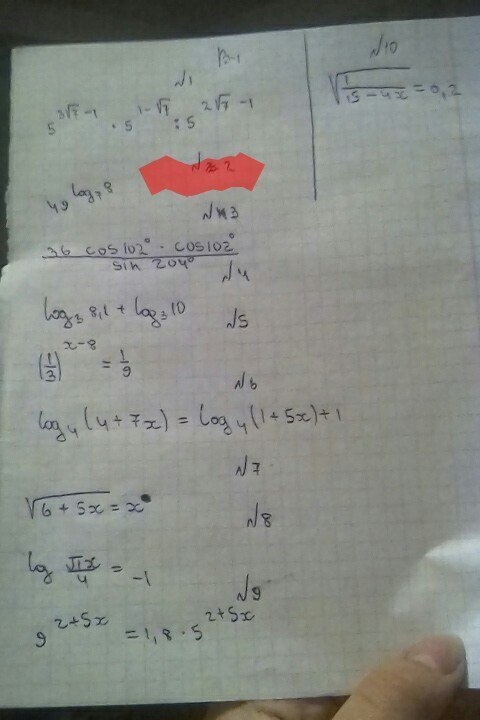 В-1
№1
5^{3√7-1} · 5^{1-√7} : 5^{2√7-1}
№2
49^{log_7 8}
№3
36 cos102° · cos102°
sin 204°
№4
log_3 8,1 + log_3 10
№5
(1/3)^{x-8} = 1/9
№6
log_4(4+7x) = log_4(1+5x)+1
№7
√(6+5x) = x
№8
log πx/4 = -1
№9
9^{2+5x} = 1,8 · 5^{2+5x}
№10
√(1/(15-4x)) = 0,2